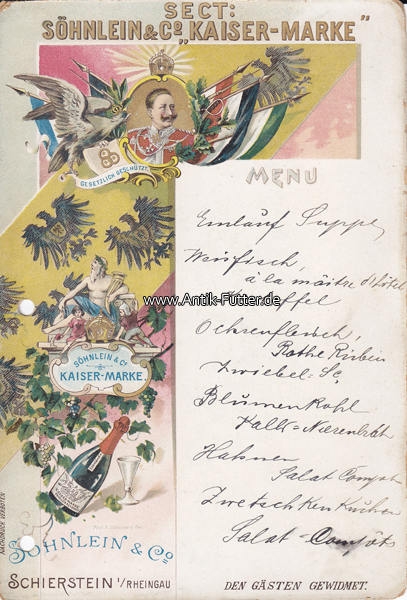 SECT:
SÖHNLEIN & Cº „KAISER-MARKE"
GESETZLICH GESCHÜTZT.
MENU
Einlauf Suppe
Weißfisch,
à la maître d'hôtel
Ochsenfleisch,
Rothe Rüben
Zwiebel=Sc
Blumenkohl
Kalbs-Nierenbrat
Hahnen
Salat Compot
Zwetschkenkuchen
Salat Compots
SÖHNLEIN & Cº
KAISER-MARKE.
www.Antik-Futter.de
NACHDRUCK VERBOTEN
SÖHNLEIN & Cº
SCHIERSTEIN I/RHEINGAU
DEN GÄSTEN GEWIDMET.